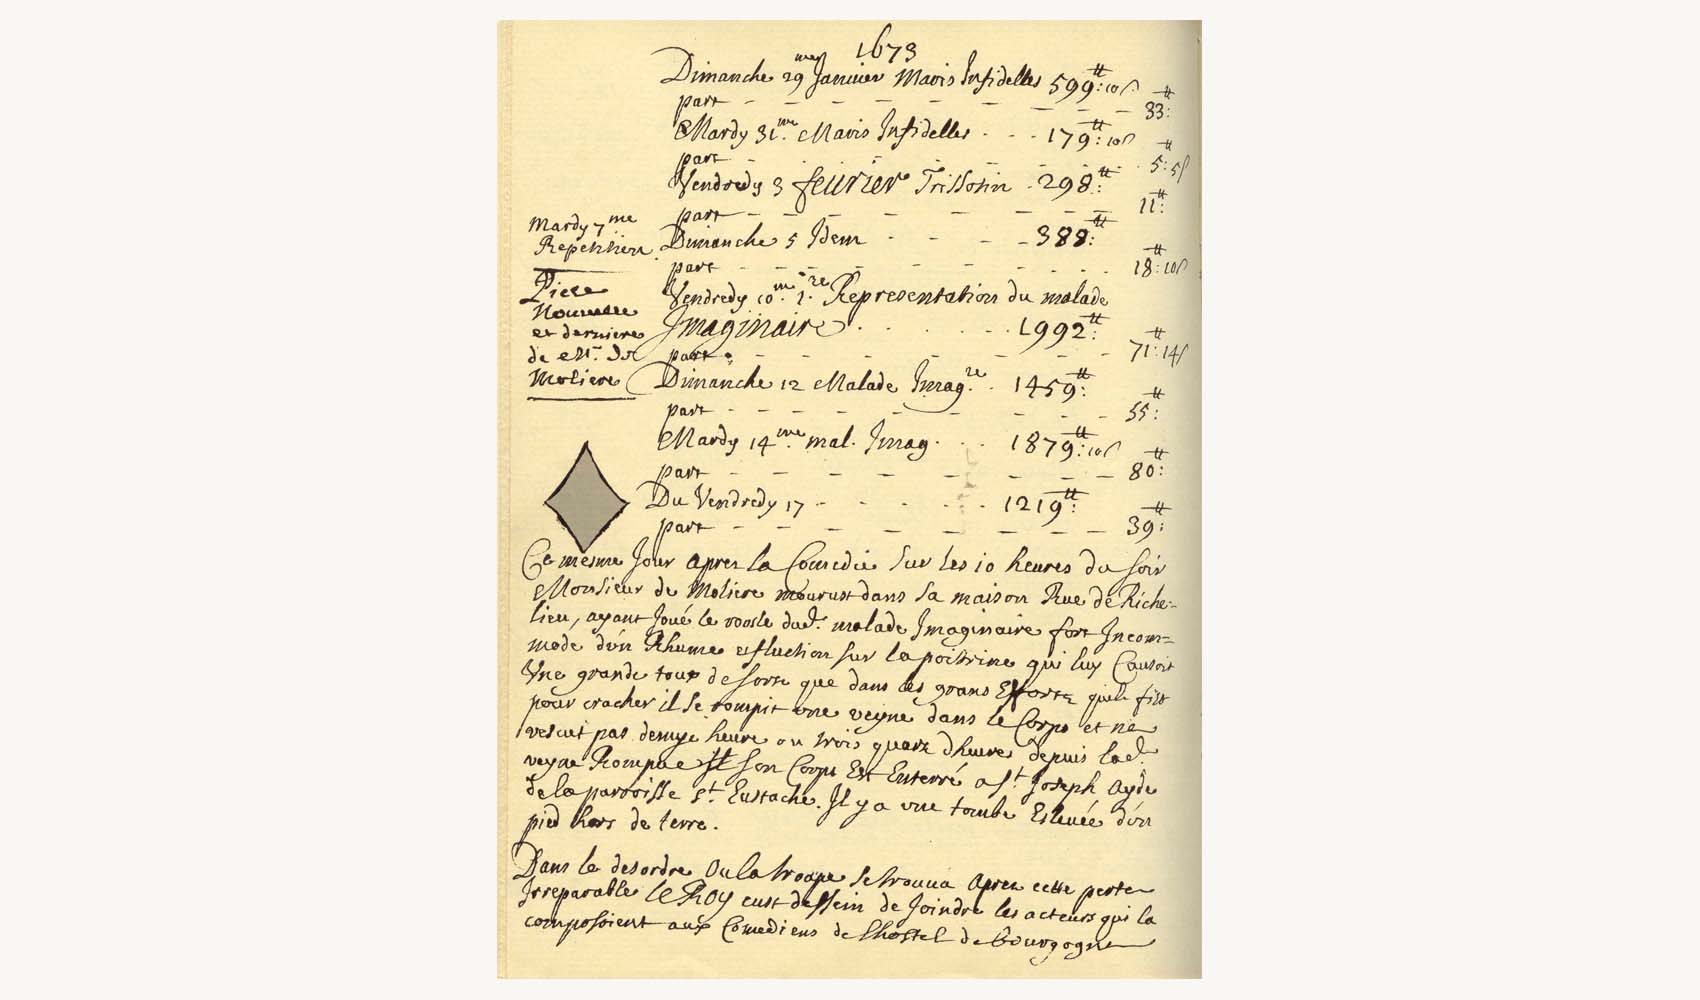 1673
Dimanche 29me Janvier Maris Infidelles 599tt: 10s
part - - - - - - - - - 33tt:
Mardy 31.me Maris Infidelles . - - 179tt: 10s
part - - - - - - - 5tt: 5s
Vendredy 3 feurier Trissotin . 298tt:
part - - - - - - - - 11tt:
Mardy 7me
Repetition.
Dimanche 5 Idem - - - - 388tt:
part - - - - - - - - 18tt: 10s
Piece
Nouuelle
et derniere
de Mr. De
Moliere
Vendredy 10.me 1.re Representation du malade
Imaginaire . . . . . . 1992tt:
part . - - - - - - - 71tt: 14s
Dimanche 12 Malade Imag.re . 1459tt:
part - - - - - - - - 55tt:
Mardy 14.me mal. Imag. - - 1879tt: 10s
part - - - - - - - - 80tt:
Du Vendredy 17 - - - - - 1219tt:
part - - - - - - - - 39tt:
Ce mesme Jour apres la Comedie sur les 10 heures du soir
Monsieur de Moliere mourust dans sa maison Rue de Riche=
lieu, ayant Joué le roosle dud. malade Imaginaire fort Incom=
modé d'un Rhume et fluction sur la poitrine qui luy Causoit
Vne grande toux de sorte que dans les grans Efforts quil fist
pour cracher il se rompit une veyne dans le Corps et ne
vescut pas demye heure ou trois quarz dheure depuis lad.
veyne Rompue Et son Corps Est Enterré a St. Joseph ayde
de la parroisse St. Eustache. Il y a vne tombe Esleuée d'un
pied hors de terre.
Dans le desordre Ou la troupe se trouua apres cette perte
Irreparable le Roy eust dessein de Joindre les acteurs qui la
composoient aux Comediens de lhostel de bourgogne